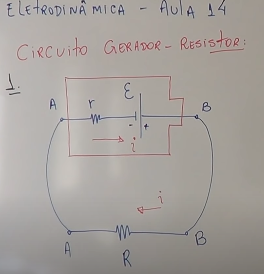 ELETRODINÂMICA - AULA 14
CIRCUITO GERADOR-RESISTOR:
1.
A r ε B
- +
i
i
A B
R